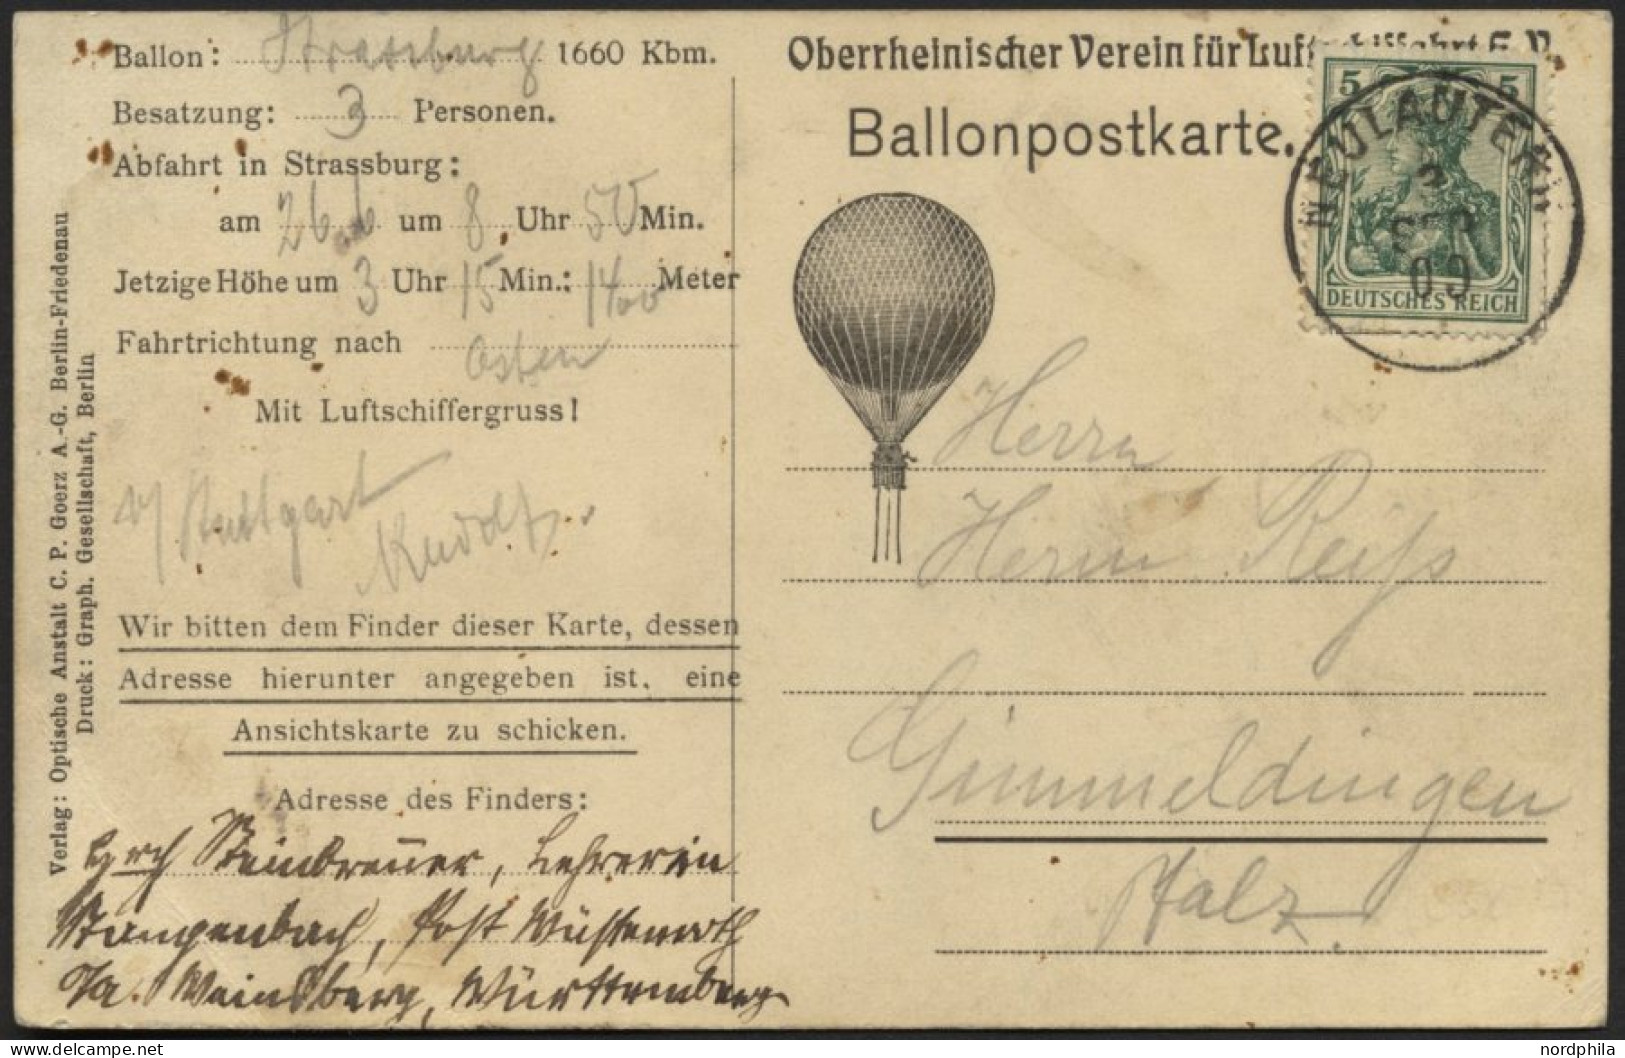 Ballon: Strassburg 1660 Kbm.
Besatzung: 3 Personen.
Abfahrt in Strassburg:
am 26.6 um 8 Uhr 50 Min.
Jetzige Höhe um 3 Uhr 15 Min.: 1400 Meter
Fahrtrichtung nach Osten
Mit Luftschiffergruss!
Stuttgart
Wir bitten dem Finder dieser Karte, dessen
Adresse hierunter angegeben ist, eine
Ansichtskarte zu schicken.
Adresse des Finders:
Steinbrenner, Lehrerin
Stangenbach, Post Wüstenroth
Weinsberg, Württemberg
Verlag: Optische Anstalt C. P. Goerz A.-G. Berlin-Friedenau
Druck: Graph. Gesellschaft, Berlin
Oberrheinischer Verein für Luftschiffahrt E.V.
Ballonpostkarte.
5 5
DEUTSCHES REICH
NEULAUTERN
2
SEP
09
Herrn
Herm Reiß
Gimmeldingen
Pfalz.
nordphila
delcampe.net